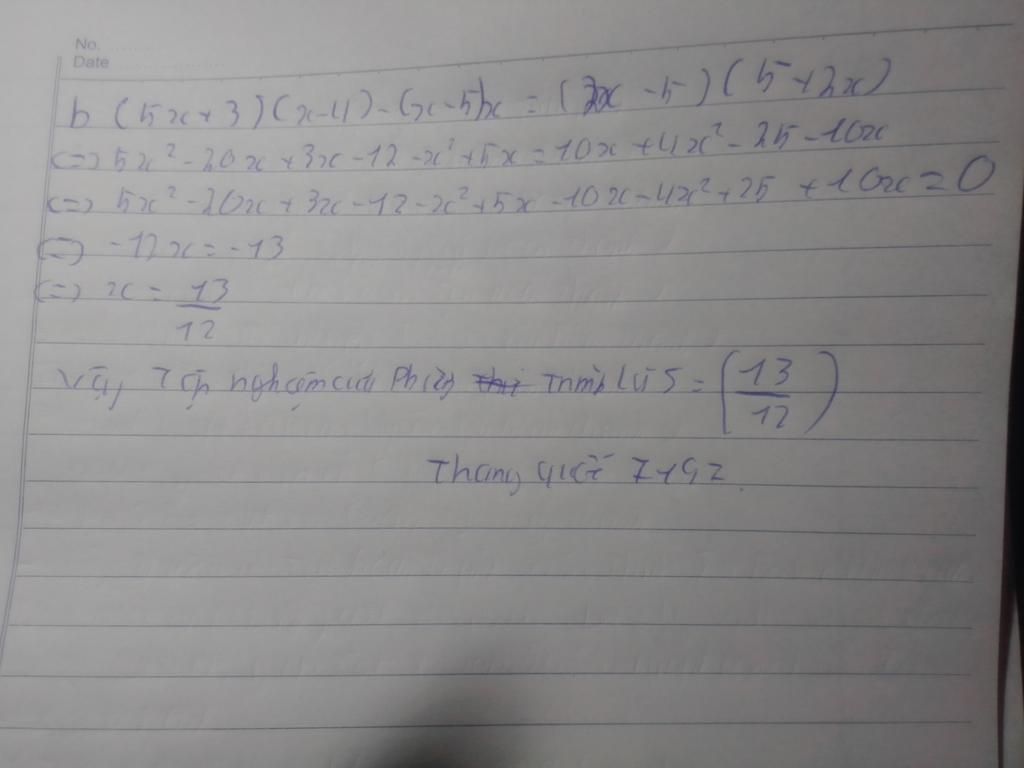 No.
Date
b (5x+3)(x-4)-(x-5)x = (2x-5)(5+2x)
<=> 5x²-20x+3x-12-x²+5x=10x+4x²-25-10x
<=> 5x²-20x+3x-12-x²+5x-10x-4x²+25+10x=0
<=> -12x=-13
<=> x = 13/12
Vậy Tập nghiệm của Phương Trình là S = (13/12)